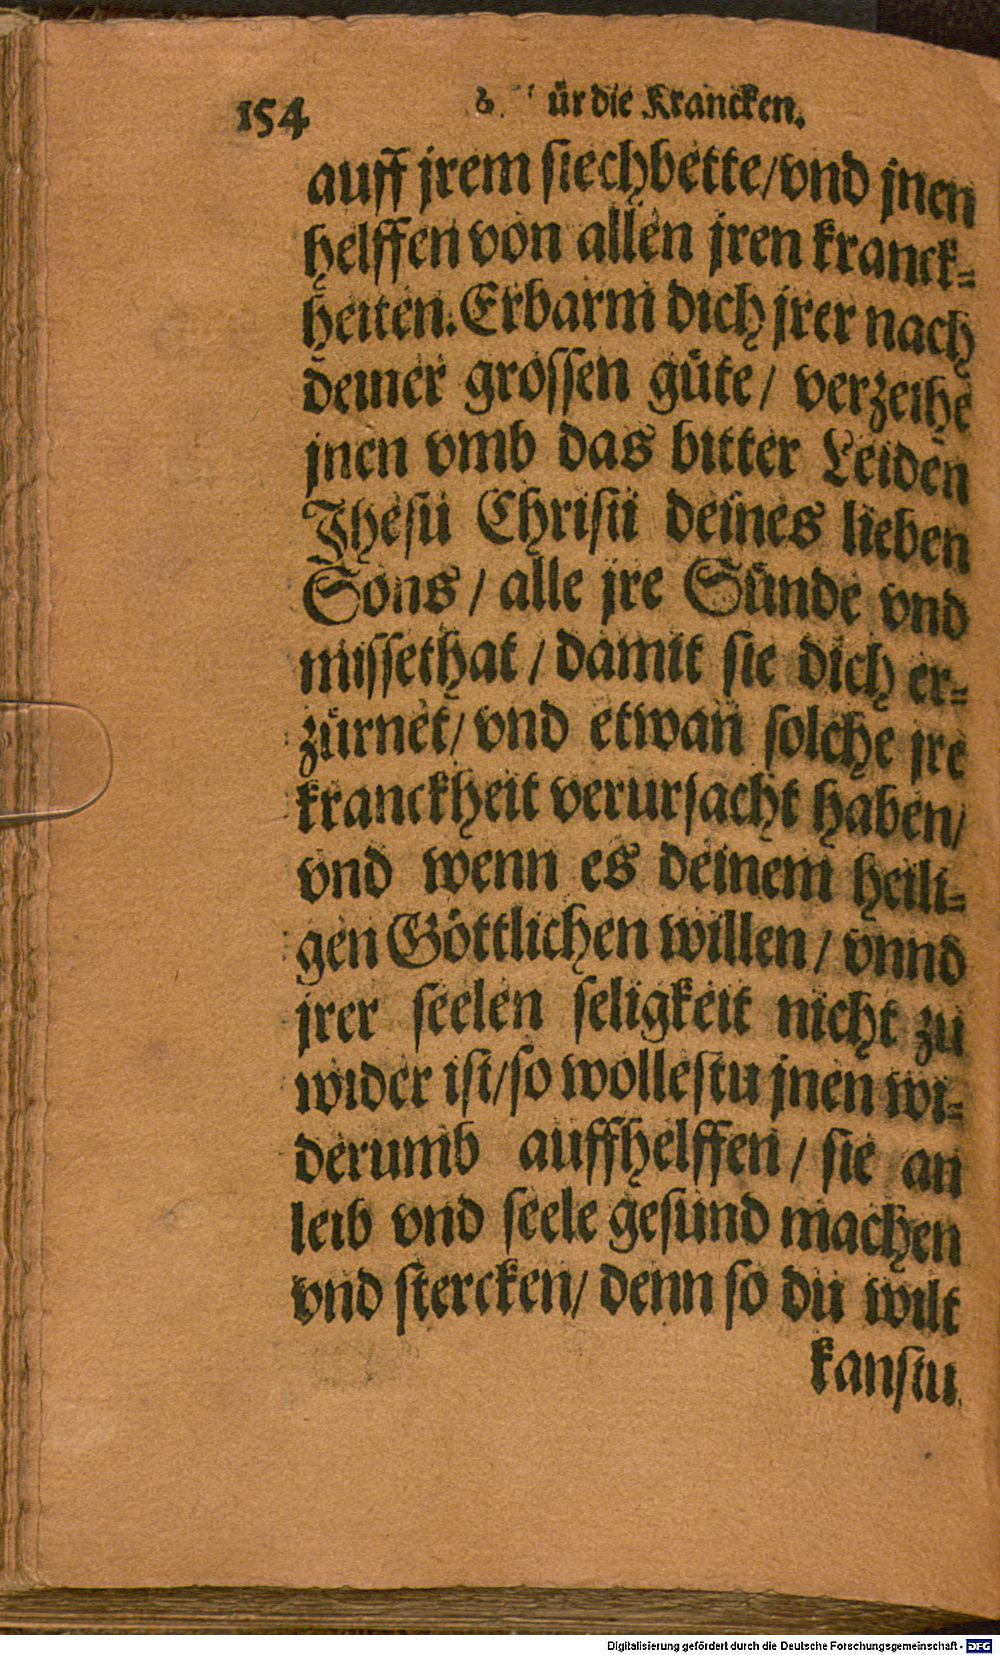 154 ür die Krancken.
auff jrem siechbette/vnd jnen
helffen von allen jren kranck=
heiten. Erbarm dich jrer nach
deiner grossen güte/ verzeihe
jnen vmb das bitter Leiden
Jhesu Christi deines lieben
Sons/ alle jre Sünde vnd
missethat/ damit sie dich er=
zürnet/ vnd etwan solche jre
kranckheit verursacht haben/
vnd wenn es deinem heili=
gen Göttlichen willen/ vnnd
jrer seelen seligkeit nicht zu
wider ist/so wollestu jnen wi=
derumb auffhelffen/ sie an
leib vnd seele gesund machen
vnd stercken/ denn so du wilt
kanstu
Digitalisierung gefördert durch die Deutsche Forschungsgemeinschaft - DFG